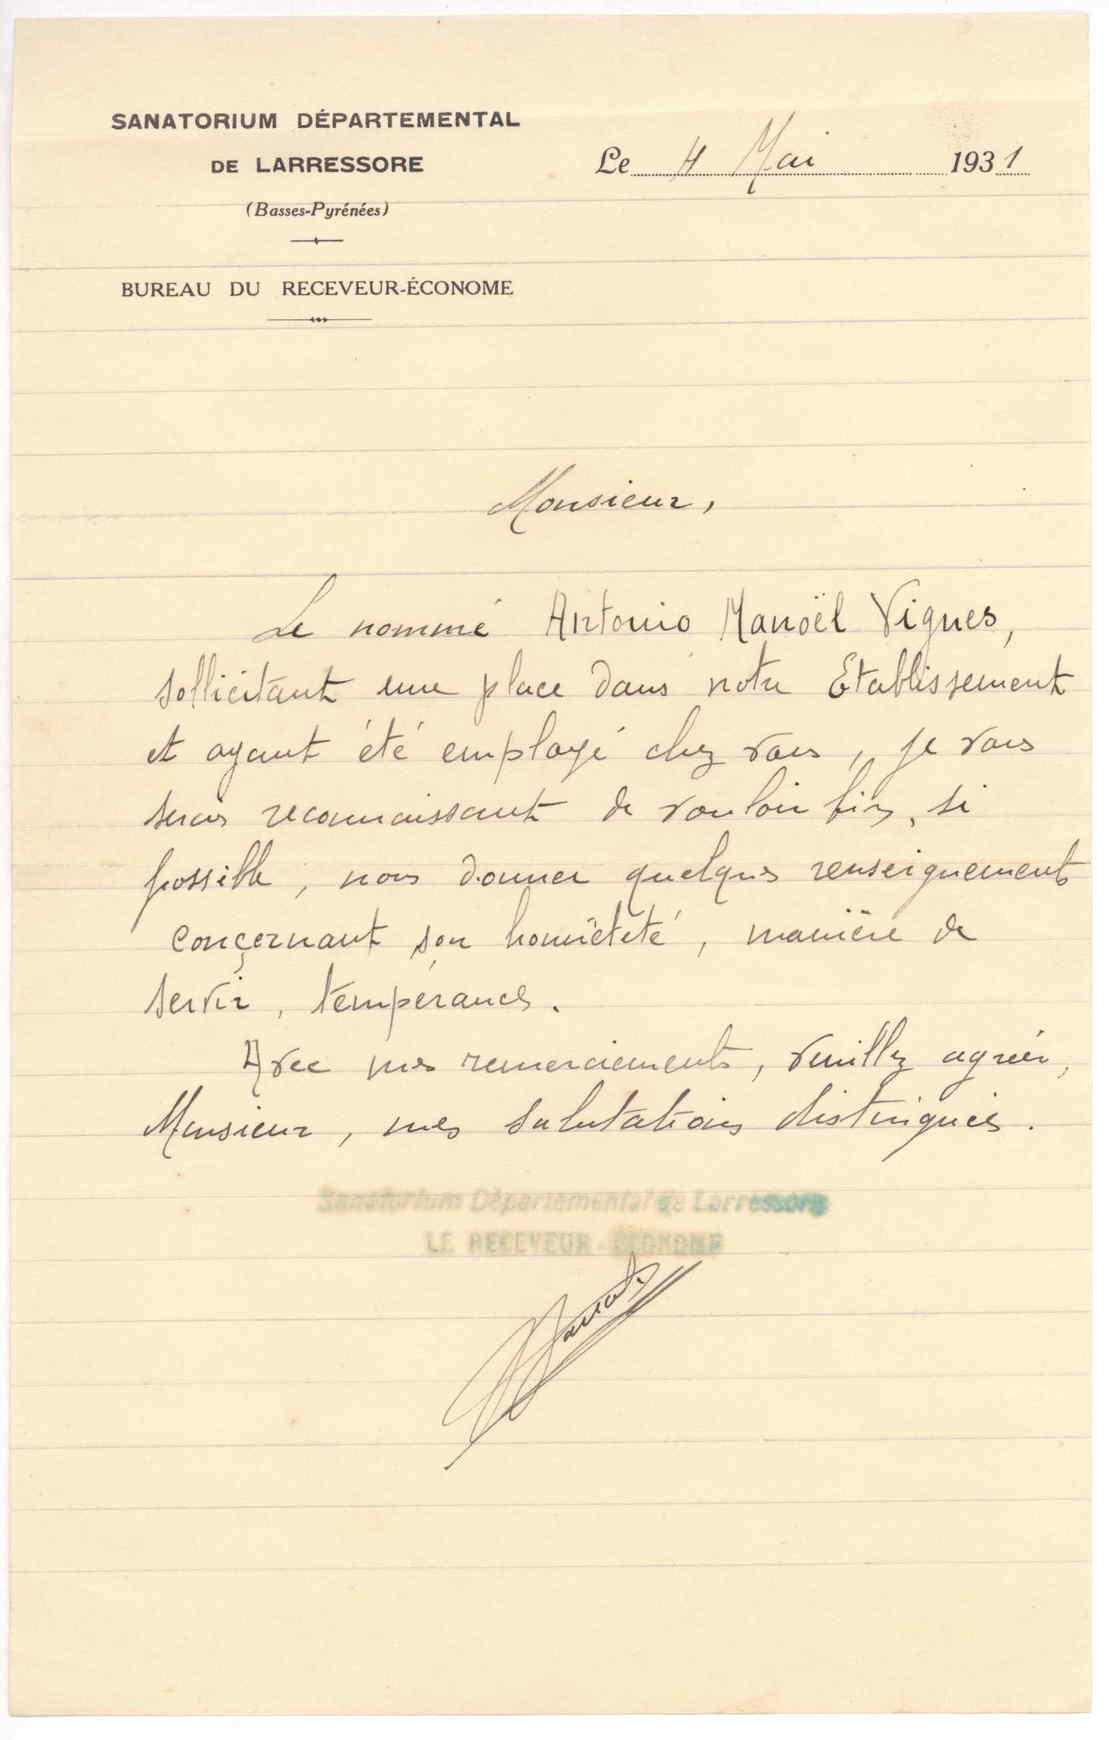 SANATORIUM DÉPARTEMENTAL
DE LARRESSORE
(Basses-Pyrénées)
BUREAU DU RECEVEUR-ÉCONOME
Le 4 Mai 1931
Monsieur,
Le nommé Antonio Manoël Vignes,
sollicitant une place dans notre Etablissement
et ayant été employé chez vous, je vous
serais reconnaissant de vouloir bien, si
possible, nous donner quelques renseignements
concernant son honnêteté, manière de
servir, tempérance.
Avec mes remerciements, veuillez agréer,
Monsieur, mes salutations distinguées.
Sanatorium Départemental de Larressore
LE RECEVEUR-ÉCONOME